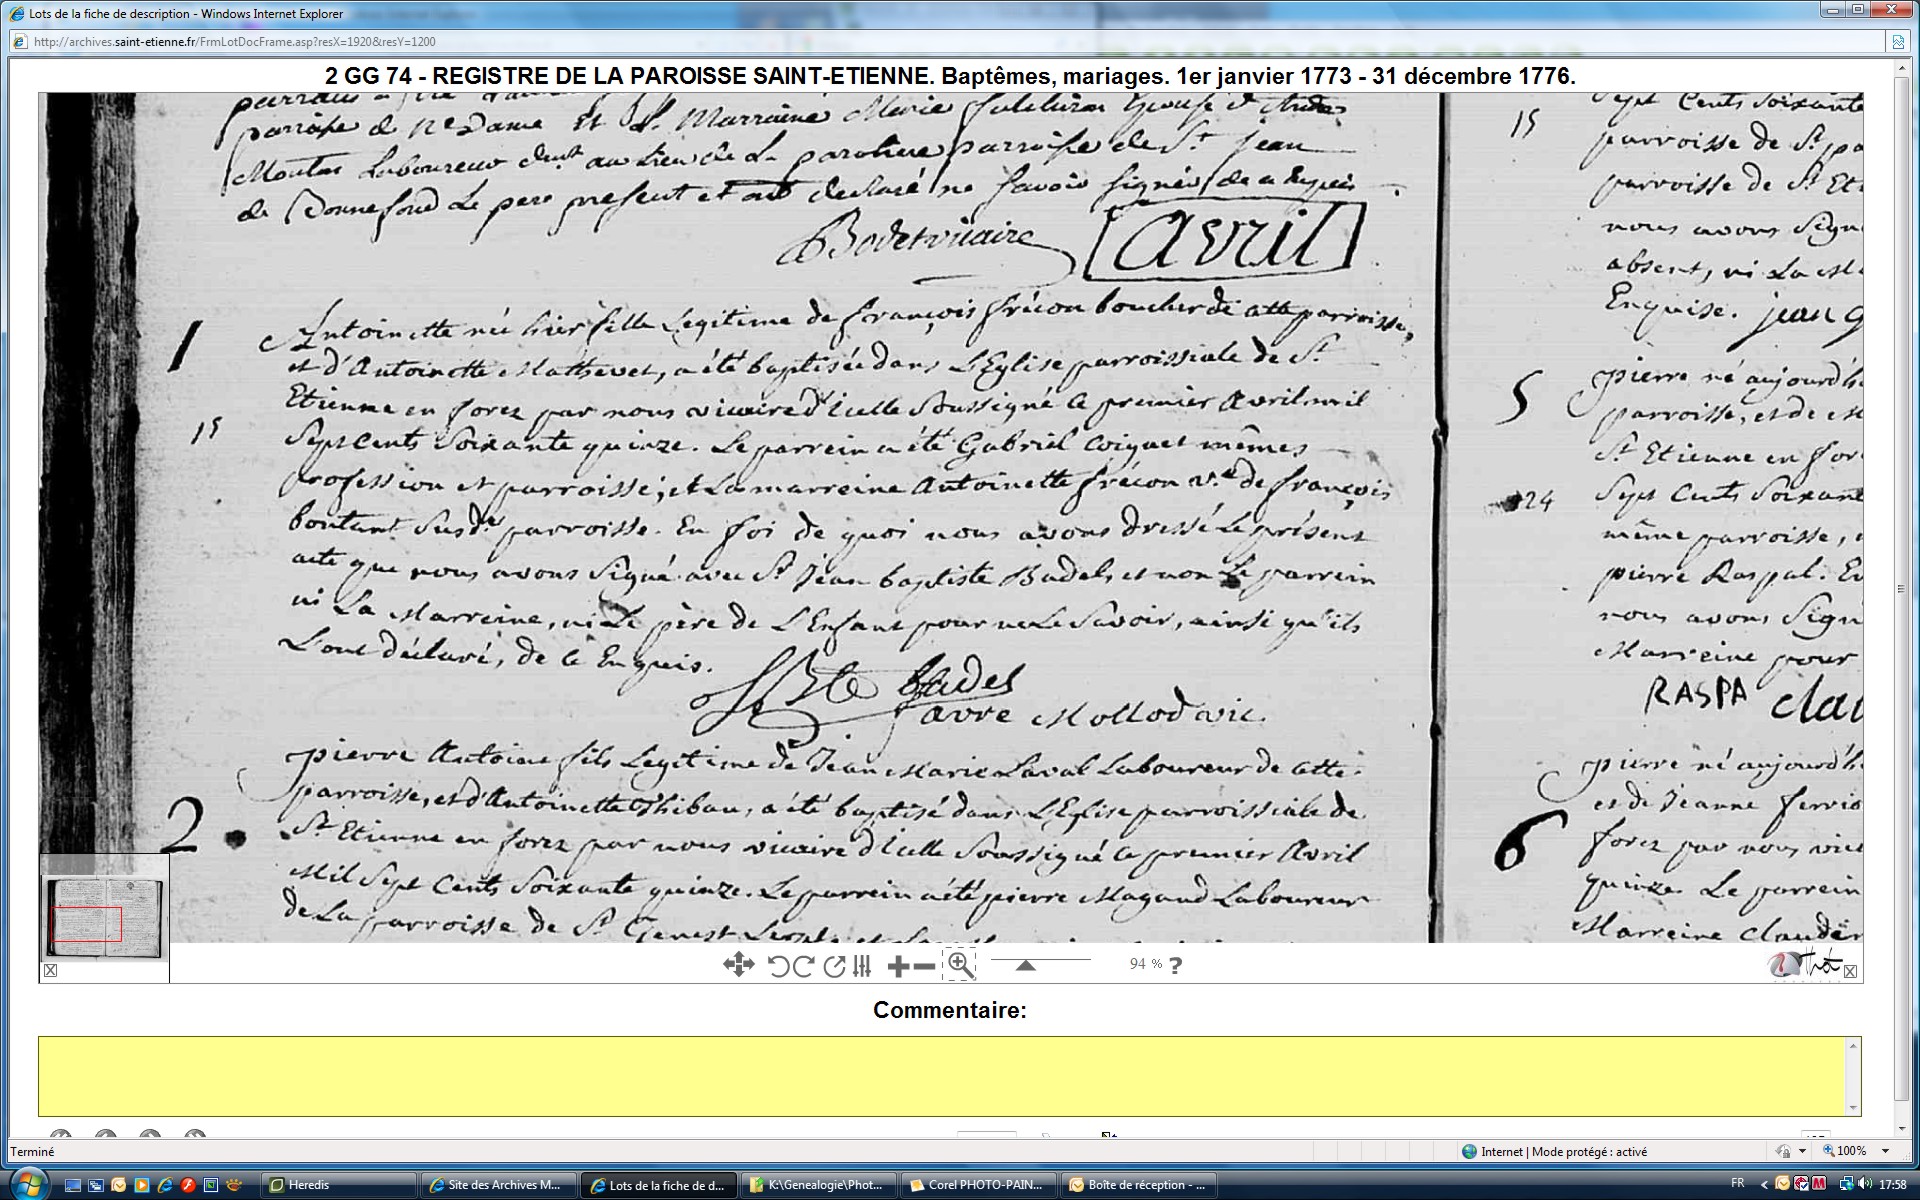 Lots de la fiche de description - Windows Internet Explorer
http://archives.saint-etienne.fr/FrmLotDocFrame.asp?resX=1920&resY=1200
2 GG 74 - REGISTRE DE LA PAROISSE SAINT-ETIENNE. Baptêmes, mariages. 1er janvier 1773 - 31 décembre 1776.
parroisse de Ne Dame Et La Marraine Marie épouse d'André
Laboureur au Lieu de La parroisse de St Jean
de Bonnefond Le pere present et ont declaré ne savoir signer de ce Enquis
Bodet vicaire
avril
1
Antoinette née hier fille Legitime de françois frécon boucher de cette parroisse,
et d'Antoinette Mathevet, a été baptisée dans L'Eglise parroissiale de St
Etienne en forez par nous vicaire d'icelle Soussigné le premier Avril mil
15
Sept Cents Soixante quinze. Le parrein a été Gabriel Coignet mêmes
profession et parroisse; et La marreine Antoinette frécon ve de françois
boutant Susde parroisse. En foi de quoi nous avons dressé Le présent
acte que nous avons Signé avec Sr Jean baptiste Badel, et non Le parrein
ni La Marreine, ni Le père de L'Enfant pour ne Le Savoir, ainsi qu'ils
L'ont déclaré, de ce Enquis.
Bte Badel
favre Mollod vic.
2
pierre Antoine fils Legitime de Jean Marie Laval Laboureur de cette
parroisse, et d'Antoinette Thibau, a été baptisé dans L'Eglise parroissiale de
St Etienne en forez par nous vicaire d'icelle Soussigné le premier Avril
Mil Sept Cents Soixante quinze. Le parrein a été pierre Magand Laboureur
de La parroisse de St Genest
Sept Cents Soixante
15
parroisse de St
parroisse de St Et
nous avons Sign
absent, ni La M
Enquise. jean g
5
pierre né aujourd'h
parroisse, et de
St Etienne en for
124
Sept Cents Soixan
même parroisse,
pierre Raspal. E
nous avons Sign
Marreine pour
RASPA clau
pierre né aujourd'h
et de Jeanne ferrio
6
forez par nous vic
quinze. Le parrein
Marreine Clauder
94 % ?
Thot
Commentaire:
Terminé
Internet | Mode protégé : activé
100%
Heredis
Site des Archives M...
Lots de la fiche de d...
K:\Genealogie\Phot...
Corel PHOTO-PAIN...
Boîte de réception - ...
FR
17:58